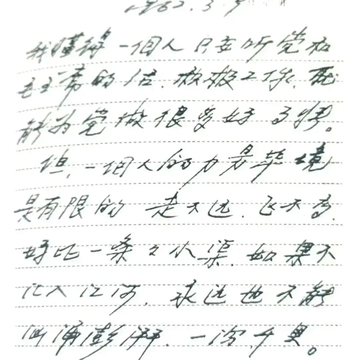 1962.3.9
我懂得一个人只要听党和
毛主席的话,积极工作,就
能为党做很多好事情。
但,一个人的力量毕竟
是有限的,走不远,飞不高,
好比一条条小渠,如果不
汇入江河,永远也不能
汹涌澎湃,一泻千里。